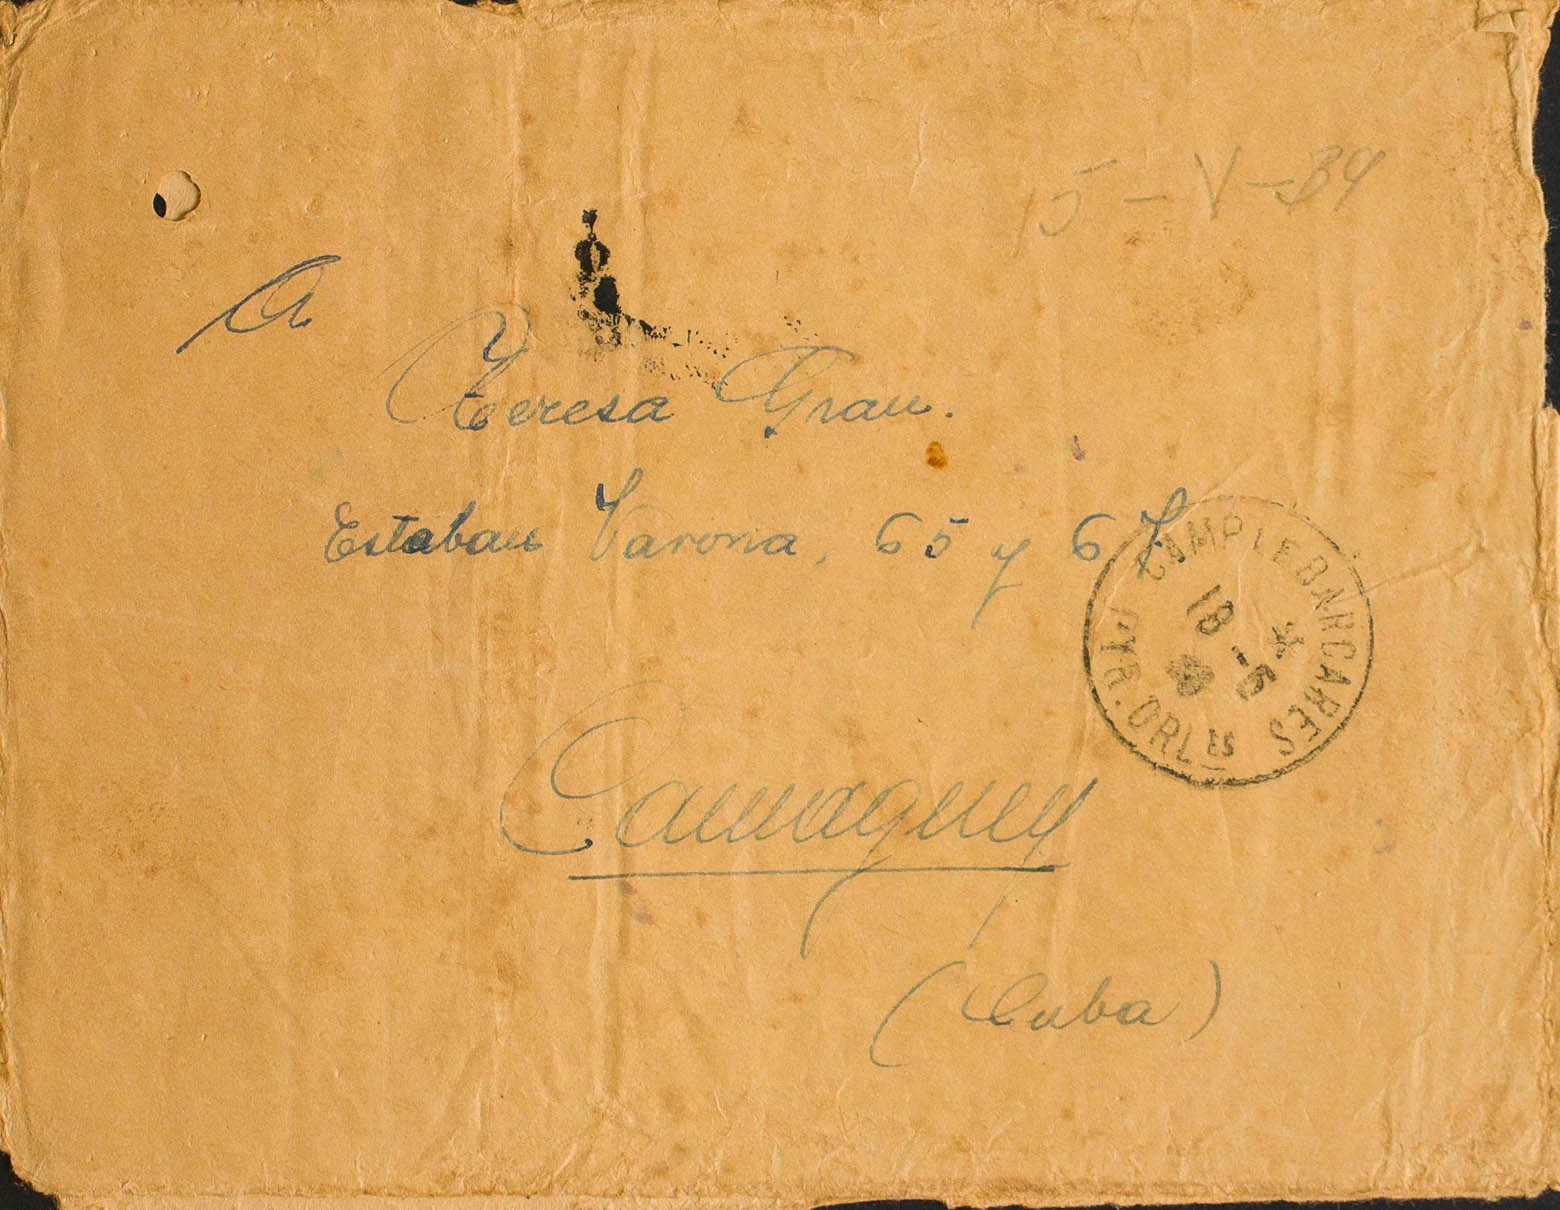 15-V-39
A
Teresa Grau.
Estaban Varona, 65 y 67
CAMP LE BARCARES
18 -5
PYR. ORLES
Camaguey
(Cuba)